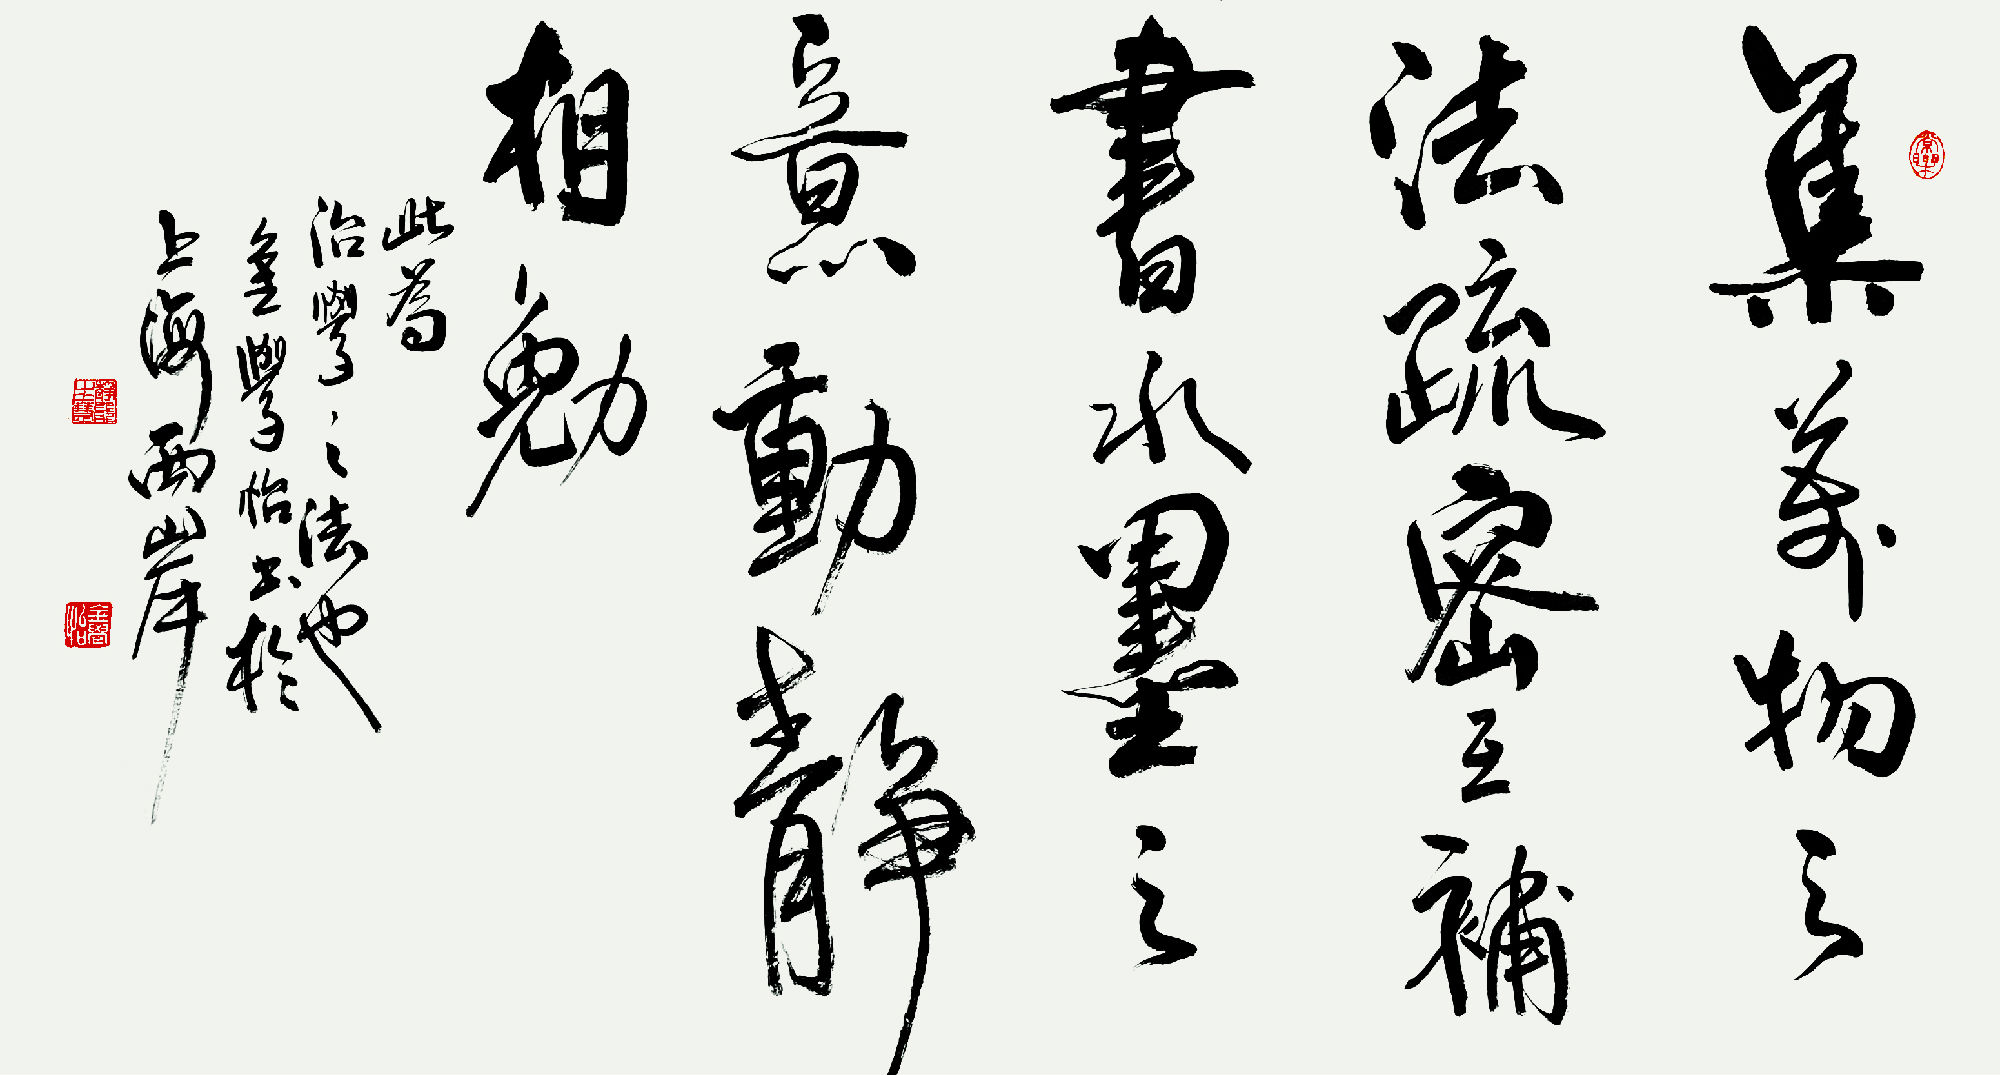 集萬物之
法疏密互補
書水墨之
意動靜
相勉
此為
治學之法也
金學怡書於
上海西岸